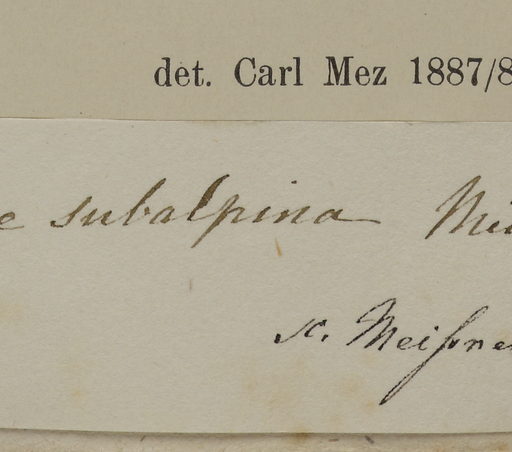 det. Carl Mez 1887/8
e subalpina
Meißne